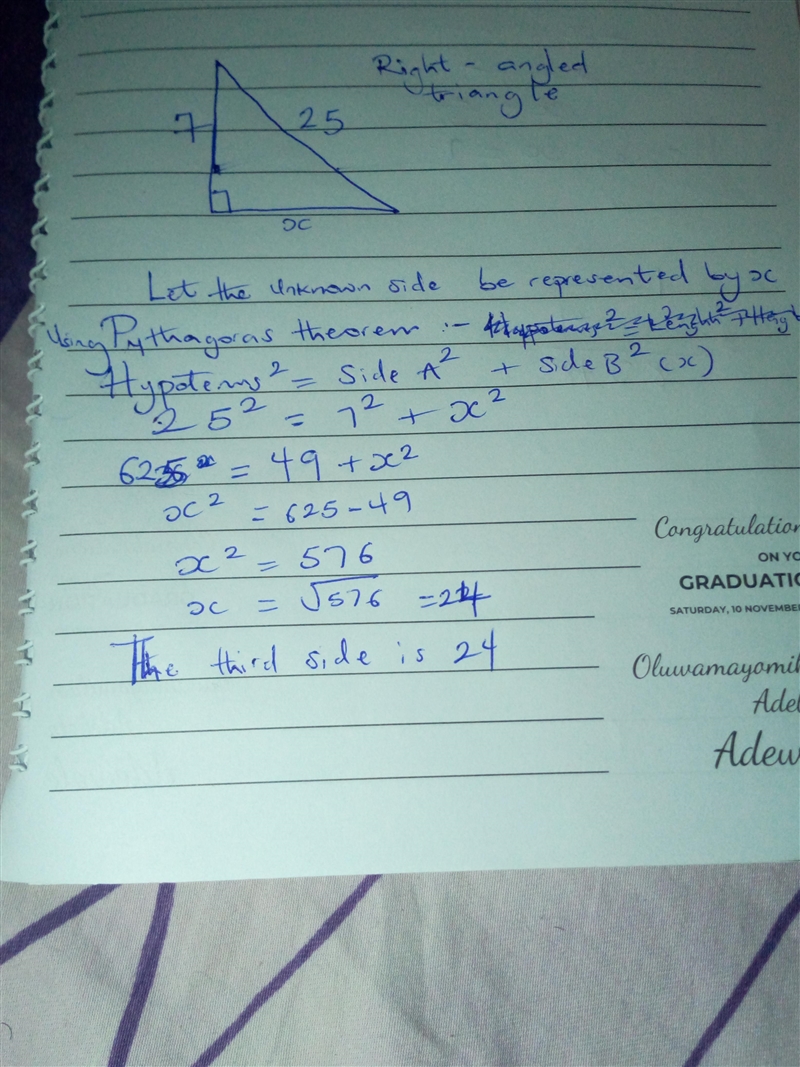 Right - angled
triangle
7
25
x
Let the unknown side be represented by x
Using Pythagoras theorem :-
Hypotenus² = Side A² + Side B² (x)
25² = 7² + x²
625 = 49 + x²
x² = 625 - 49
x² = 576
x = √576 = 24
The third side is 24
Congratulation
ON YO
GRADUATIO
SATURDAY, 10 NOVEMBE
Oluwamayomi
Adel
Adew